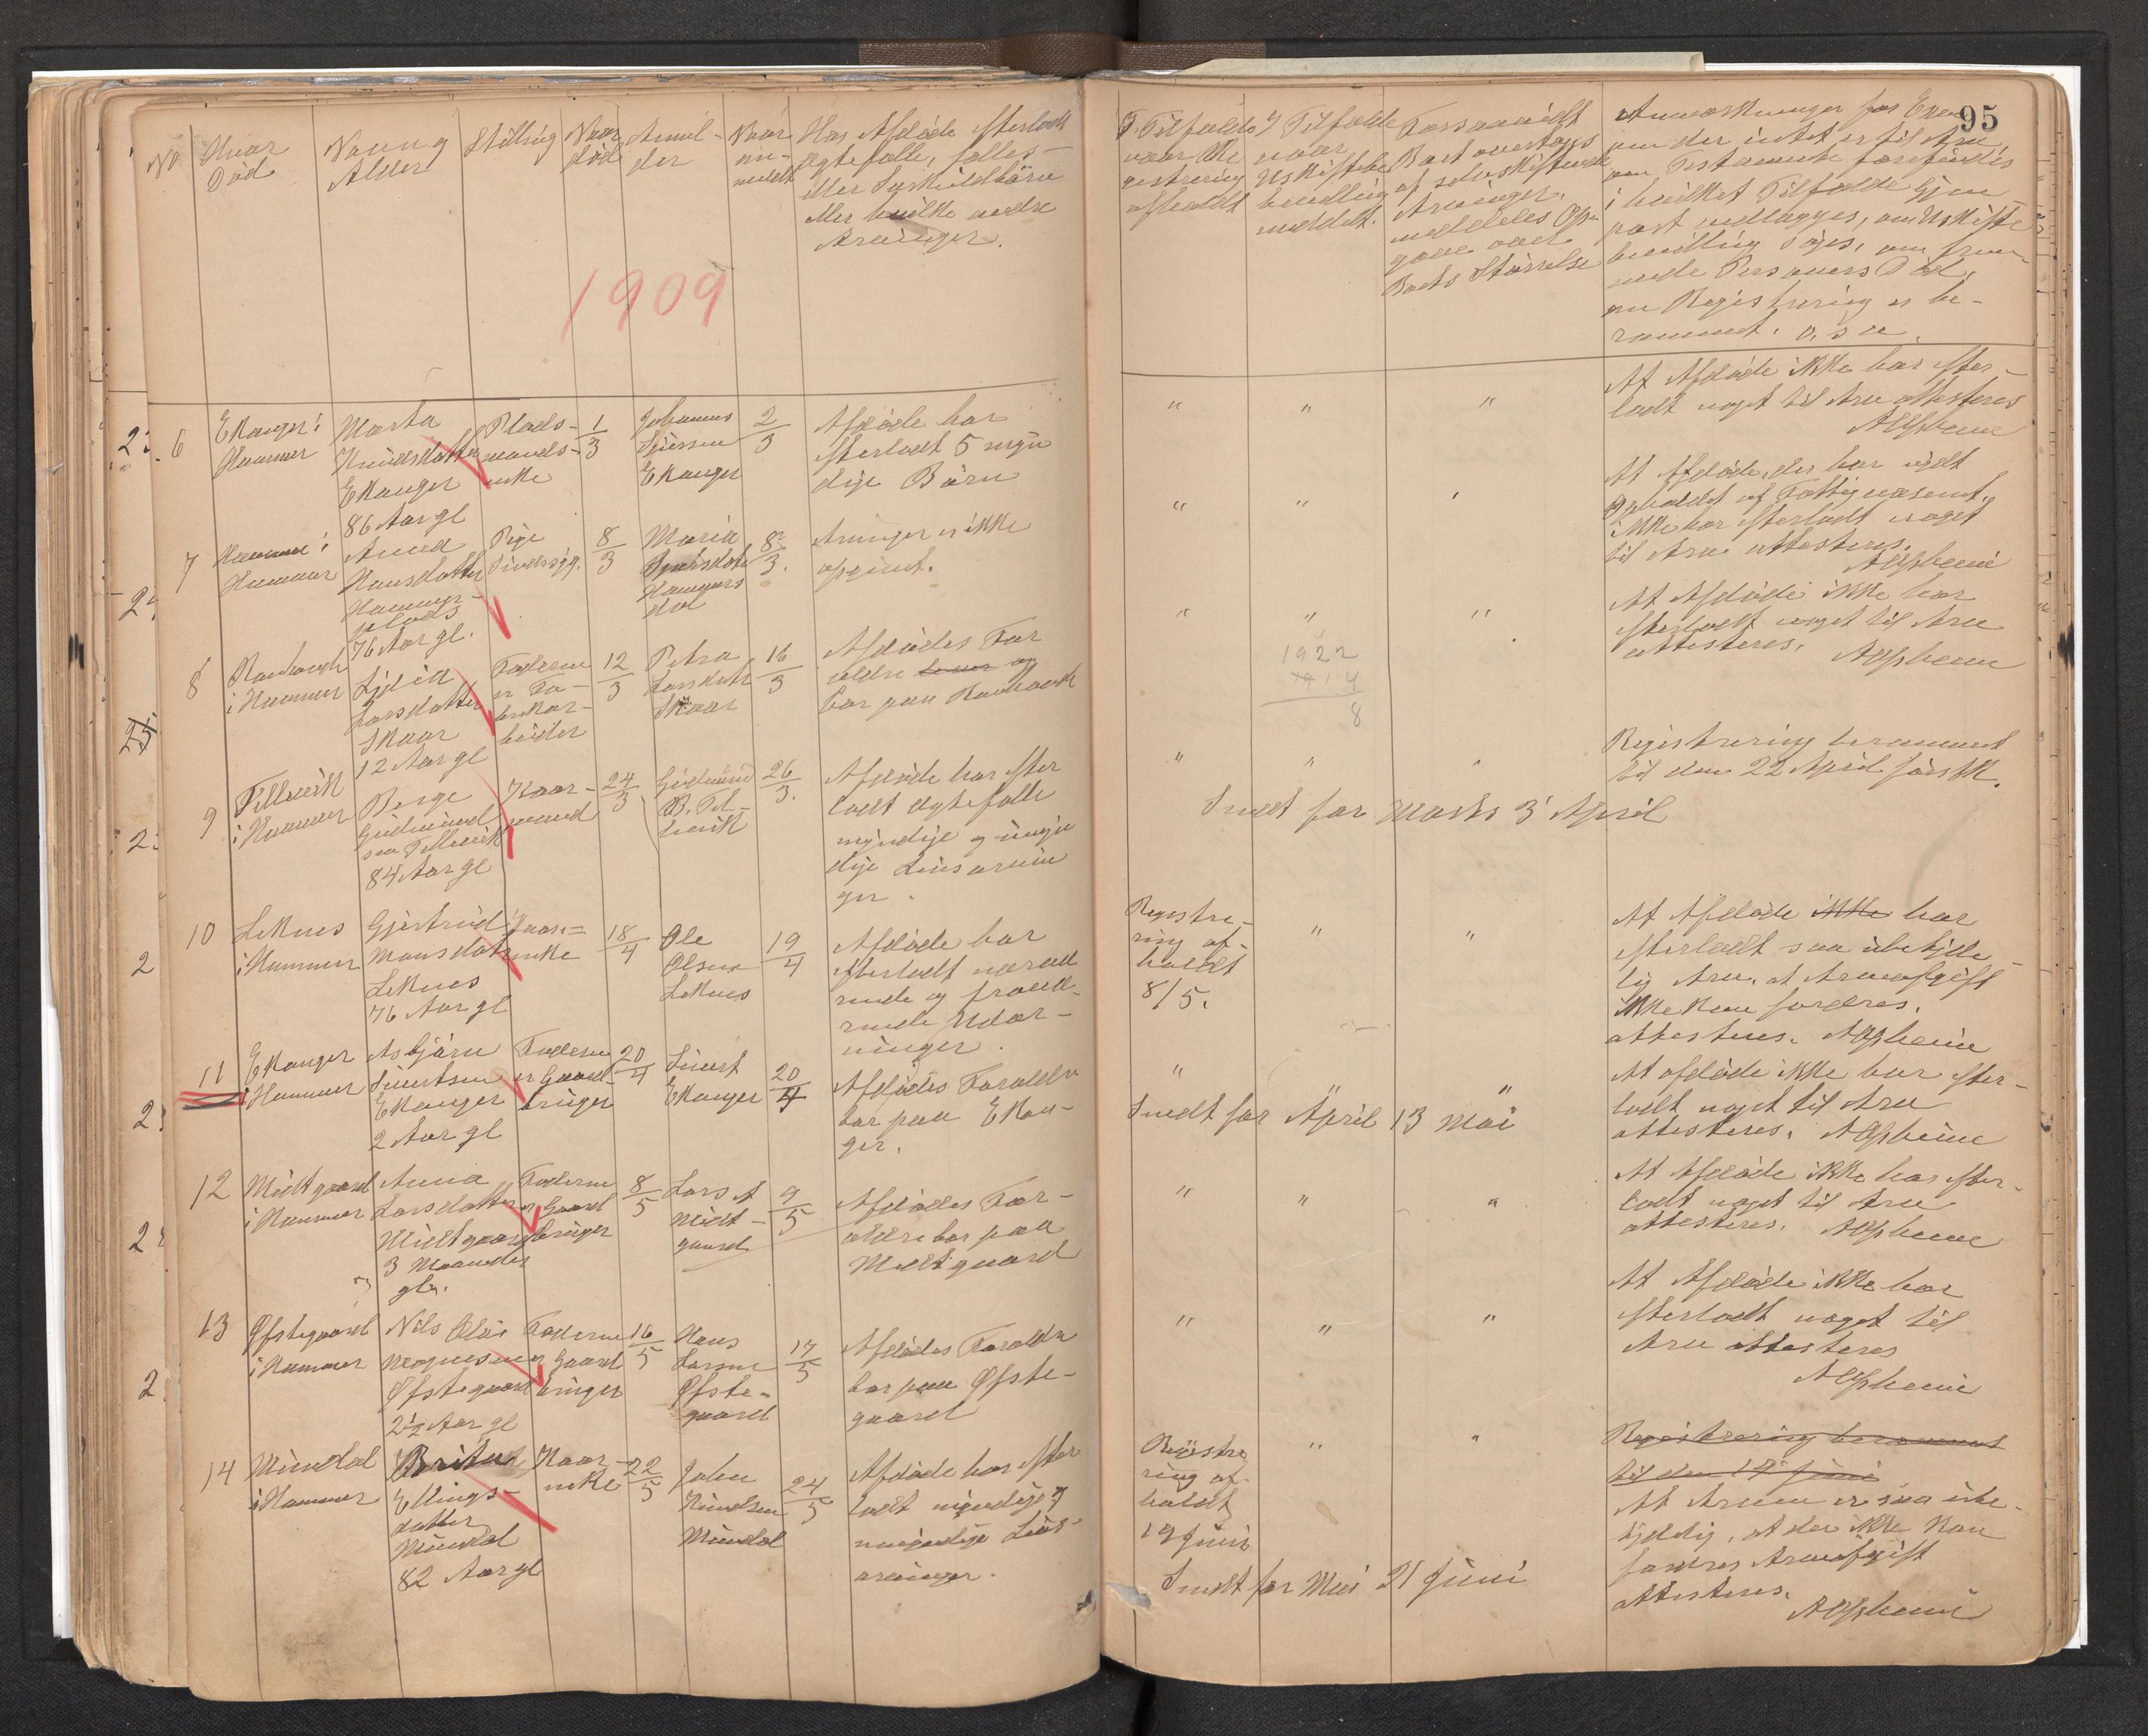 95
No
Hvor
Död
Navn og
Alder
Stilling
Naar
död
Anmel-
der
Naar
an-
meldt
Har Afdöde efterladt
Ægtefælle, fælles-
eller Særkuldbörn
eller hvilke andre
Arvinger.
1909
I Tilfælde
naar Re
gistrering
afholdt
I Tilfælde
naar
Uskiftebe
handling
meddelt.
Forsaavidt
Boet overtages
af selvskiftende
Arvinger.
meddeles Op-
gave over
Boets Störrelse
Anmærkninger for Exem
om der intet er til Arv
om Testamente forefindes
i hvilket Tilfælde Gjen
part vedlægges, om Uskifte
bewilling söges, om frem-
mede Personers Död,
om Registrering er be-
rammet. o. s v.
6
Ekanger i
Hammer
Marta
Knudsdatter
Ekanger
86 Aar gl
Plads-
mands-
enke
1/3
Johannes
Sjursen
Ekanger
2/3
Afdöde har
efterladt 5 myn
dige Börn
" " "
At Afdöde ikke har efter-
ladt noget til Arv attesteres
7
Hammer i
Hammer
Hansdatter
Hammer-
plads
76 Aar gl.
Pige
Sindssyg.
8/3
Maria
Hammers
8/3.
Arvinger er ikke
opgivet.
" " "
At Afdöde, der har nydt
Ophold af Fattigvæsenet,
ikke har efterladt noget
til Arv attesteres.
8
i Hammer
Larsdatter
Skaar
12 Aar gl
Faderen
er Fa-
brikar-
beider
12/3
Petra
Larsdatr
Skaar
16/3
Afdödes For
ældre og
bor paa
" " "
At Afdöde ikke har
efterladt noget til Arv
attesteres.
1922
1914
8
9
Tellevik
i Hammer
Berge
Gudmund
sen Tellevik
84 Aar gl
Kaar-
mand
24/3
Gudmund
B. Tel-
levik
26/3.
Afdöde har efter
ladt Ægtefælle
myndige og umyn
dige Livsarvin
ger.
" " "
Registrering berammet
til den 22 April förstk.
Sendt for Marts 3 April
10
Leknes
i Hammer
Gjertrud
Monsdatr
Leknes
76 Aar gl
Kaar-
enke
18/4
Ole
Olsen
Leknes
19/4
Afdöde har
efterladt nærvæ
rende og fravæ-
rende Udar-
vinger.
Registre-
ring af-
holdt
8/5.
" "
At Afdöde ikke har
efterladt saa ubetyde
lig Arv, at Arveafgift
ikke kan fordres,
attesteres.
11
Ekanger
i Hammer
Asbjörn
Sivertsen
Ekanger
2 Aar gl
Faderen
er Gaard-
bruger
20/4
Sivert
Ekanger
20/4
Afdödes Forældre
bor paa Ekan-
ger.
" " "
At afdöde ikke har efter-
ladt noget til Arv
attesteres.
Sendt for April 13 Mai
12
Midtgaard
i Hammer
Anna
Larsdatter
Midtgaard
3 Maaneder
gl.
Faderen
er Gaard
bruger
8/5
Lars A
Midt-
gaard
9/5
Afdödes For-
ældre bor paa
Midtgaard
" " "
At Afdöde ikke har efter-
ladt noget til Arv
attesteres.
13
Øfstegaard
i Hammer
Nils Olai
Magnesen
Øfstegaard
2½ Aar gl
Faderen
er Gaard
bruger
16/5
Hans
Larsen
Øfste-
gaard
17/5
Afdödes Forældre
bor paa Øfste-
gaard
" " "
At Afdöde ikke har
efterladt noget til
Arv attesteres
14
Mundal
i Hammer
Ellings-
datter
Mundal
82 Aar gl
Kaar-
enke
22/5
John
Knudsen
Mundal
24/5
Afdöde har efter
ladt myndige og
umyndige Livs-
arvinger.
Registre
ring af-
holdt
19 Juni
" "
Registrering berammet
til den 19 Juni
At Arven er saa ube-
tydelig, at der ikke kan
fordres Arveafgift
attesteres.
Sendt for Mai 21 Juni